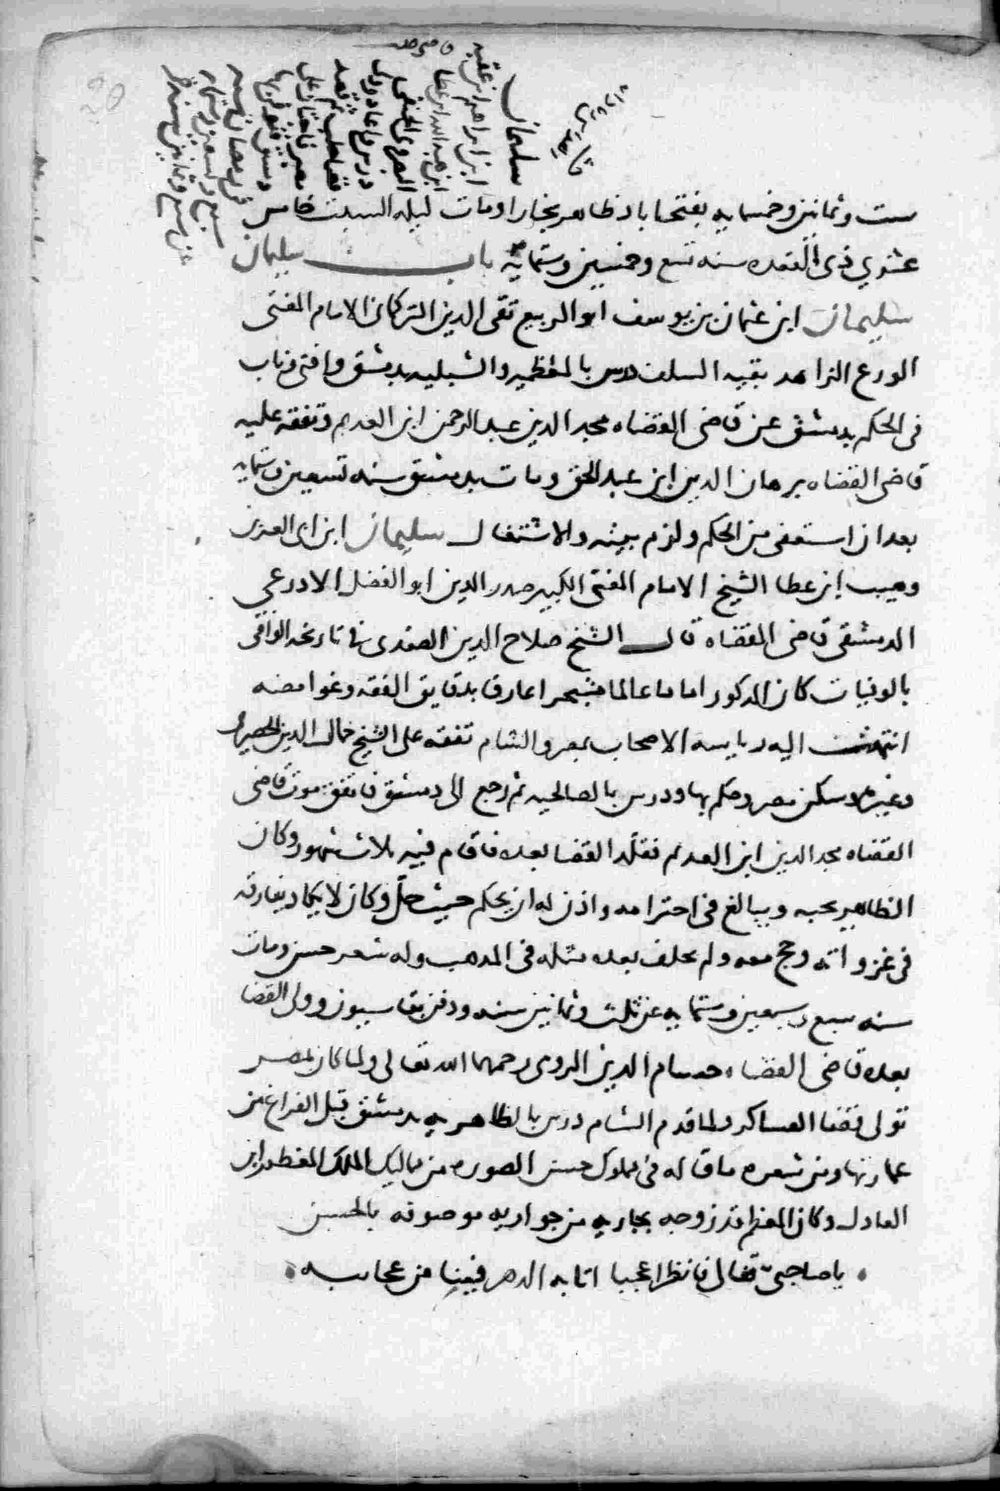 ست وثمانين وخمسمايه بفتحاباد ظاهر بخارا ومات ليله السبت خامس
عشري ذي القعده سنه تسع وخمسين وستمايه باب سليمان
سليمان ابن عثمان بن يوسف ابو الربيع تقى الدين التركمانى الامام المفتى
الورع الزاهد بقيه السلف درس بالمعظميه والشبليه بدمشق وافتى وناب
فى الحكم بدمشق عن قاضى القضاه مجد الدين عبد الرحمن ابن العديم وتفقه عليه
قاضى القضاه برهان الدين ابن عبد الحق ومات بدمشق سنه تسعين وستمايه
بعد ان استعفى من الحكم ولزم بيته والاشتغال سليمان ابن ابى العز بن
وهيب ابن عطا الشيخ الامام المفتى الكبير صدر الدين ابو الفضل الادرعي
الدمشقى قاضى القضاه قال الشيخ صلاح الدين الصفدى فى تاريخه الوافى
بالوفيات كان المذكور اماما عالما متبحرا عارفا بدقايق الفقه وغوامضه
انتهت اليه رياسه الاصحاب بمصر والشام تفقه على الشيخ جمال الدين الحصيرى
وغيره وسكن مصر وحكم بها ودرس بالصالحيه ثم رجع الى دمشق فاتفق موت قاضى
القضاه مجد الدين ابن العديم فقلد القضا بعده فاقام فيه ثلاث شهور وكان
الظاهر يحبه ويبالغ فى احترامه واذن له ان يحكم حيث حلّ وكان لا يكاد يفارقه
فى غزواته وحج معه ولم يخلف بعده مثله فى المذهب وله شعر حسن ومات
سنه سبع وسبعين وستمايه عن ثلث وثمانين سنه ودفن بقاسيون وولى القضا
بعده قاضى القضاه حسام الدين الروى رحمهما الله تعالى ولما كان بمصر
تولى قضا العساكر ولما قدم الشام درس بالظاهريه بدمشق قبل الفراغ من
عمارتها ومن شعره ما قاله فى مملوك حسن الصوره من مماليك الملك المعظم ابن
العادل وكان المعظم قد زوجه بجاريه من جواريه موصوفه بالحسن
يا صاحبىّ تعالى فانظرا عجبا اتا به الدهر فينا من عجايبه
20
سليمان
ابن ابراهيم ابن عقبه
ابن هبه الله ابن عطا
البصروى الحنفى